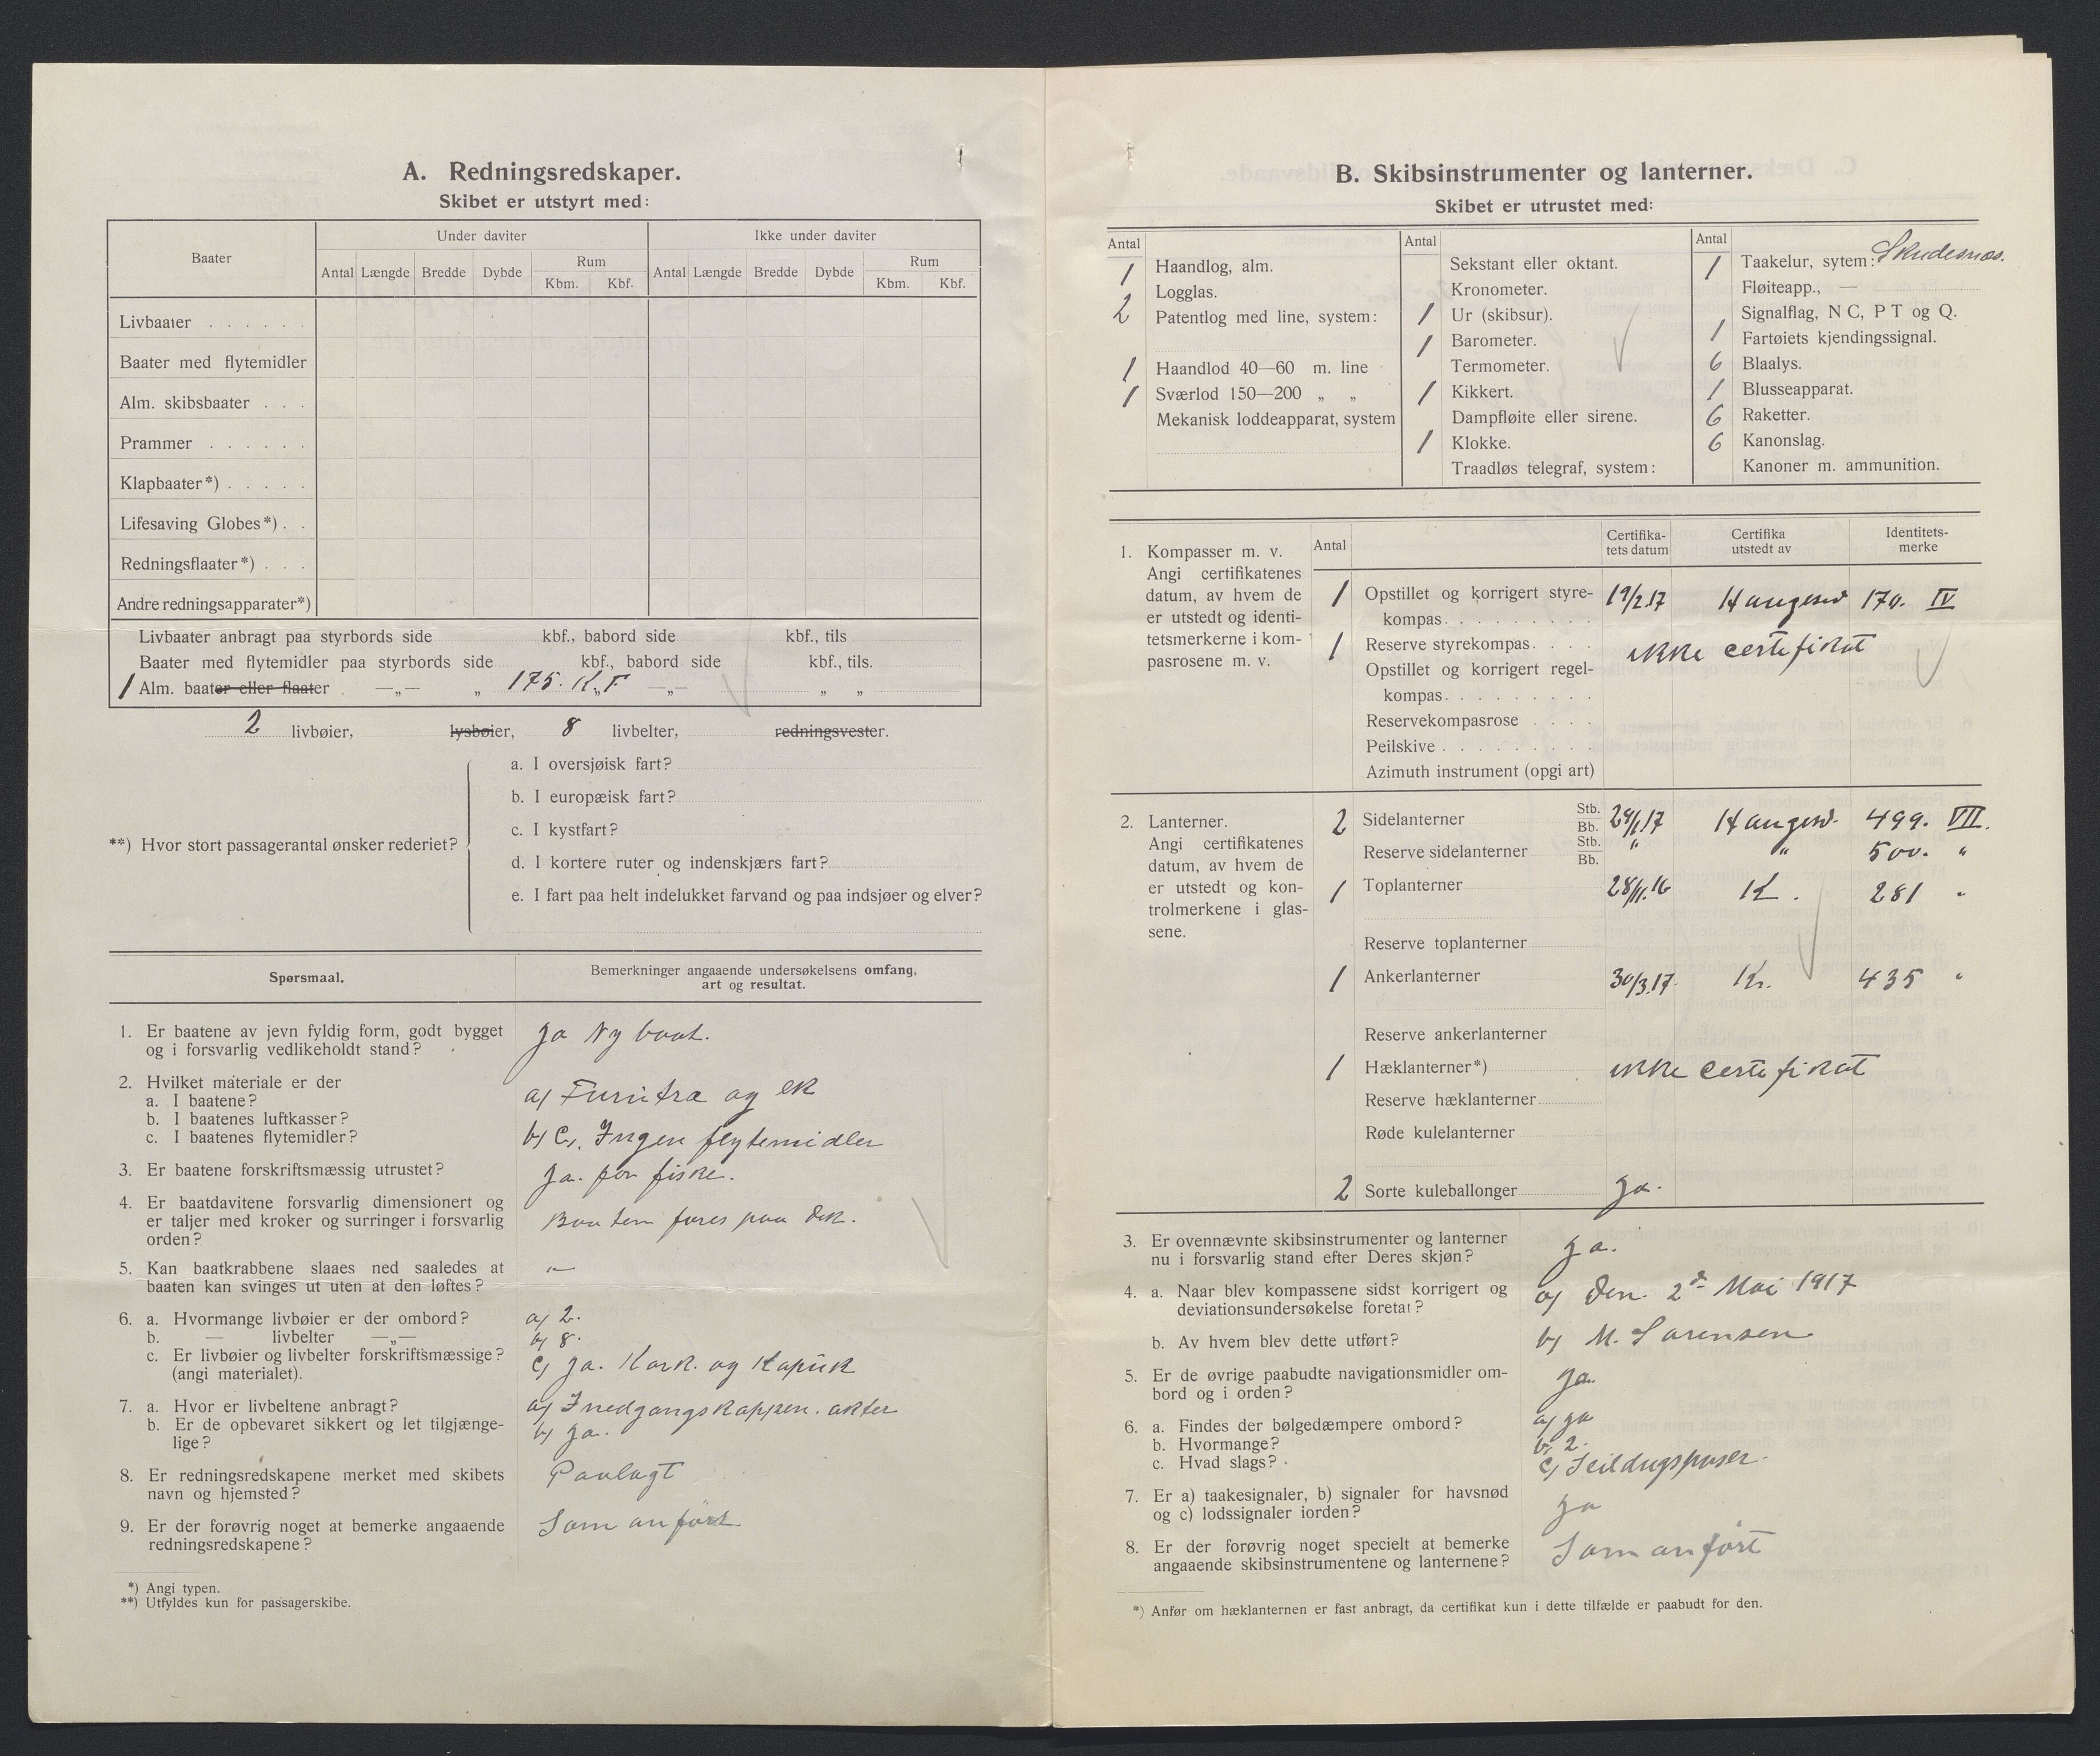 A. Redningsredskaper.
Skibet er utstyrt med:
Baater
Under daviter
Ikke under daviter
Antal Længde Bredde Dybde Rum Kbm. Kbf.
Antal Længde Bredde Dybde Rum Kbm. Kbf.
Livbaater
Baater med flytemidler
Alm. skibsbaater
Prammer
Klapbaater*)
Lifesaving Globes*)
Redningsflaater*)
Andre redningsapparater*)
Livbaater anbragt paa styrbords side kbf., babord side kbf., tils
Baater med flytemidler paa styrbords side kbf., babord side kbf., tils.
1 Alm. baater eller flaater —„— „ 175. K„F —„— „ „
2 livbøier, lysbøier, 8 livbelter, redningsvester.
**) Hvor stort passagerantal ønsker rederiet?
a. I oversjøisk fart?
b. I europæisk fart?
c. I kystfart?
d. I kortere ruter og indenskjærs fart?
e. I fart paa helt indelukket farvand og paa indsjøer og elver?
Spørsmaal.
Bemerkninger angaaende undersøkelsens omfang,
art og resultat.
1. Er baatene av jevn fyldig form, godt bygget
og i forsvarlig vedlikeholdt stand?
Ja Ny baat.
2. Hvilket materiale er der
a. I baatene?
b. I baatenes luftkasser?
c. I baatenes flytemidler?
a) Furutræ og ek
b) c). Ingen flytemidler
3. Er baatene forskriftsmæssig utrustet?
Ja. for fiske.
4. Er baatdavitene forsvarlig dimensionert og
er taljer med kroker og surringer i forsvarlig
orden?
Baaten føres paa dek.
5. Kan baatkrabbene slaaes ned saaledes at
baaten kan svinges ut uten at den løftes?
—
6. a. Hvormange livbøier er der ombord?
b. — livbelter —„—
c. Er livbøier og livbelter forskriftsmæssige?
(angi materialet).
a) 2.
b) 8.
c) Ja. Kork. og Kapuk
7. a. Hvor er livbeltene anbragt?
b. Er de opbevaret sikkert og let tilgjænge-
lige?
a) Inedgangskappen. akter
b) Ja.
8. Er redningsredskapene merket med skibets
navn og hjemsted?
Paalagt
9. Er der forøvrig noget at bemerke angaaende
redningsredskapene?
Som anført
*) Angi typen.
**) Utfyldes kun for passagerskibe.
B. Skibsinstrumenter og lanterner.
Skibet er utrustet med:
Antal
1 Haandlog, alm.
Logglas.
2 Patentlog med line, system:
1 Haandlod 40—60 m. line
1 Sværlod 150—200 „ „
Mekanisk loddeapparat, system
Antal
Sekstant eller oktant.
Kronometer.
1 Ur (skibsur).
1 Barometer.
Termometer.
1 Kikkert.
Dampfløite eller sirene.
1 Klokke.
Traadløs telegraf, system:
Antal
1 Taakelur, sytem: Skudesnæs.
Fløiteapp., —
Signalflag, N C, P T og Q.
1 Fartøiets kjendingssignal.
6 Blaalys.
1 Blusseapparat.
6 Raketter.
6 Kanonslag.
Kanoner m. ammunition.
1. Kompasser m. v.
Angi certifikatenes
datum, av hvem de
er utstedt og identi-
tetsmerkerne i kom-
pasrosene m. v.
Antal
Certifika-
tets datum
Certifika
utstedt av
Identitets-
merke
1 Opstillet og korrigert styre-
kompas 19/2.17 Haugesd 170. IV
1 Reserve styrekompas ikke certifikat
Opstillet og korrigert regel-
kompas
Reservekompasrose
Peilskive
Azimuth instrument (opgi art)
2. Lanterner.
Angi certifikatenes
datum, av hvem de
er utstedt og kon-
trolmerkene i glas-
sene.
2 Sidelanterner Stb. Bb. Haugesd. 499. VII.
Reserve sidelanterner Stb. Bb. „ „ 500. „
1 Toplanterner 28/11.16 K. 281 „
Reserve toplanterner
1 Ankerlanterner 30/3.17. Kr. 435 „
Reserve ankerlanterner
1 Hæklanterner*) ikke certifikat
Reserve hæklanterner
Røde kulelanterner
2 Sorte kuleballonger Ja.
3. Er ovennævnte skibsinstrumenter og lanterner
nu i forsvarlig stand efter Deres skjøn?
Ja.
4. a. Naar blev kompassene sidst korrigert og
deviationsundersøkelse foretat?
a) Den. 2d Mai 1917
b. Av hvem blev dette utført?
b) M. Sørensen
5. Er de øvrige paabudte navigationsmidler om-
bord og i orden?
Ja.
6. a. Findes der bølgedæmpere ombord?
b. Hvormange?
c. Hvad slags?
a) Ja
b) 2.
c) Seildugsposer.
7. Er a) taakesignaler, b) signaler for havsnød
og c) lodssignaler iorden?
Ja
8. Er der forøvrig noget specielt at bemerke
angaaende skibsinstrumentene og lanternene?
Som anført
*) Anfør om hæklanternen er fast anbragt, da certifikat kun i dette tilfælde er paabudt for den.